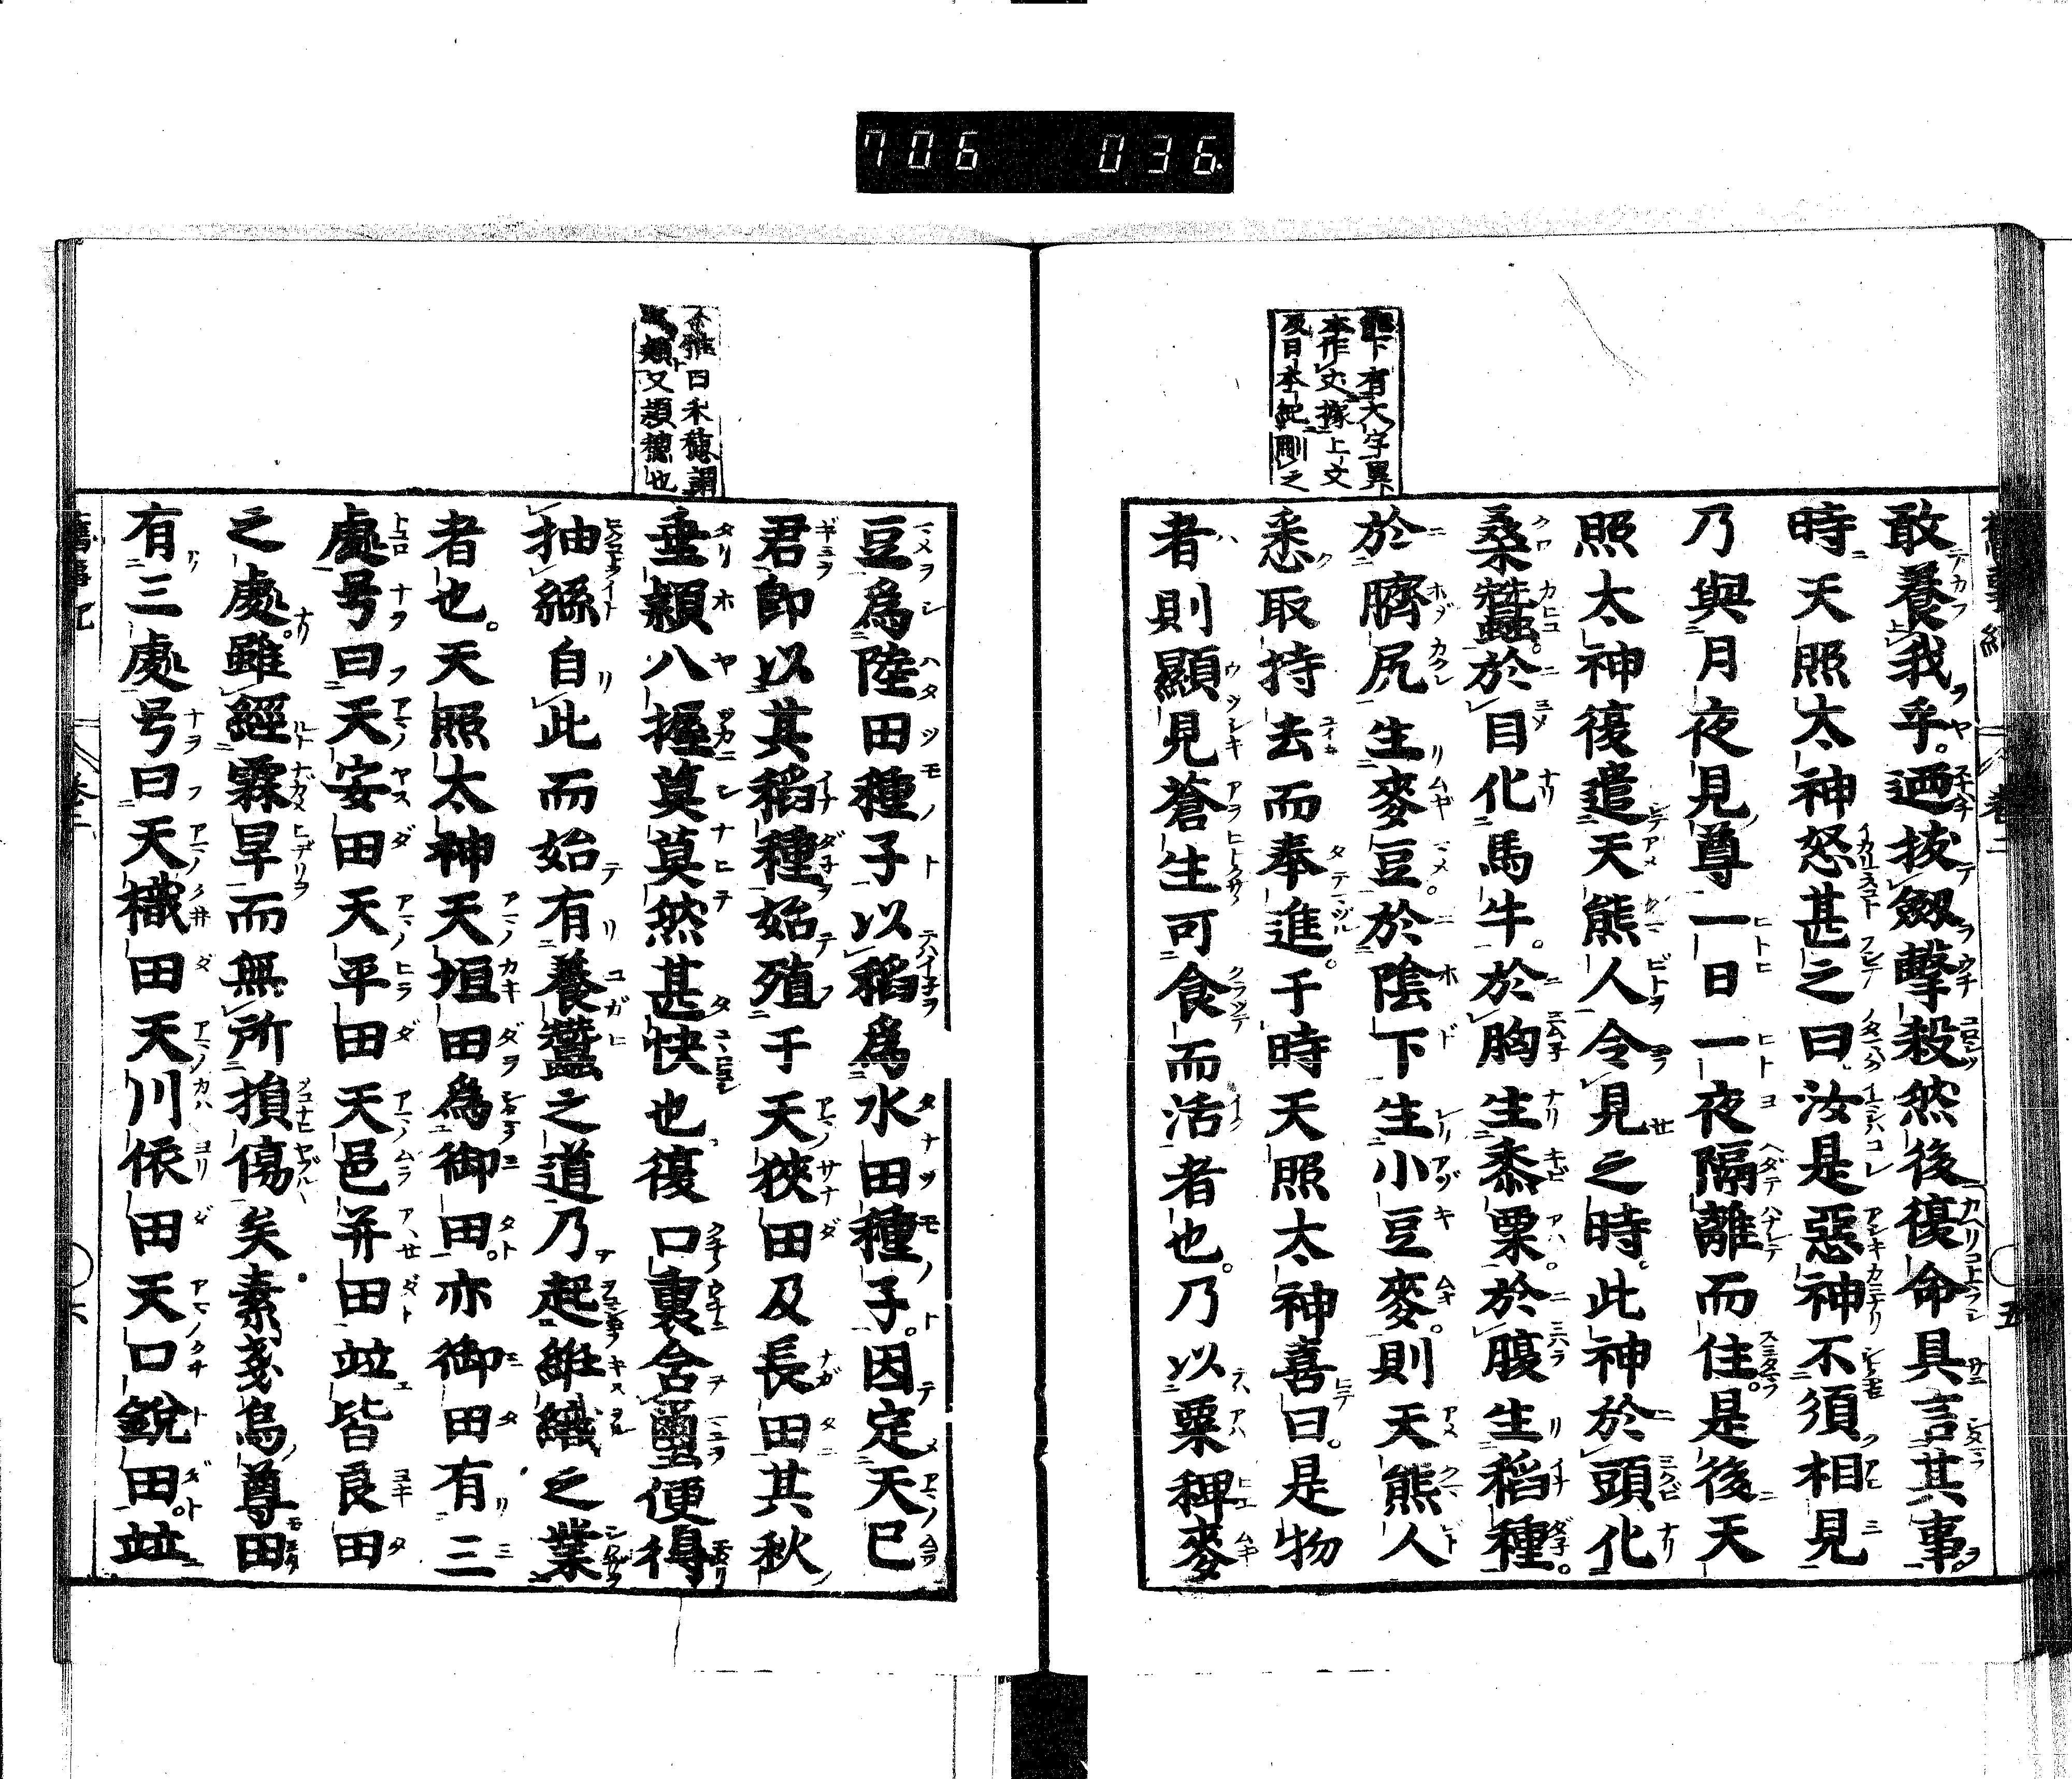 706 036.
下有大字異
本作丈據上文
及日本紀刪之
敢養我乎。廼拔劔擊殺然後復命具言其事
時天照太神怒甚之曰汝是惡神不須相見
乃與月夜見尊一日一夜隔離而住。是後天
照太神復遣天熊人令見之時。此神於頭化
桑蠶。於目化馬牛。於胸生黍粟。於腹生稻種。
於臍尻生麥豆。於陰下生小豆麥。則天熊人
悉取持去而奉進。于時天照太神喜曰。是物
者則顯見蒼生可食而活者也。乃以粟稗麥
五
雅曰禾穗謂
穎又頴穗也
豆爲陸田種子以稻爲水田種子。因定天邑
君卽以其稻種始殖于天狹田及長田其秋
垂穎八握莫莫然甚快也。復口裏含蠒便得
抽絲自此而始有養蠶之道乃起絍織之業
者也。天照太神天垣田爲御田。亦御田有三
處号曰天安田天平田天邑并田竝皆良田
之處。雖經霖旱而無所損傷矣素戔烏尊田
有三處号曰天樴田天川依田天口銳田。竝
舊事紀 卷二 六